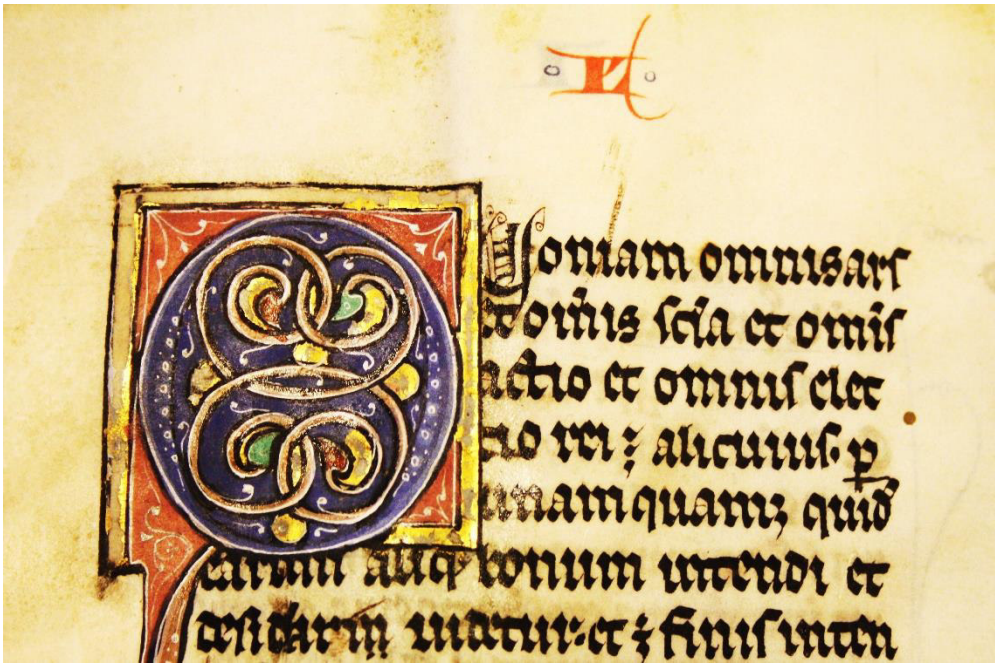 QUoniam omnis ars
et om̄is sc̄ia et om̄is
actio et omnis elec
tio rei ꝫ alicuius. ꝑ
unam quamqꝫ
earum aliqͩ bonum intendi et
uidetur. et ꝫ finis inten